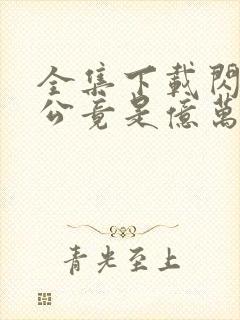 全集下載閃
公竟是億萬
青光至上